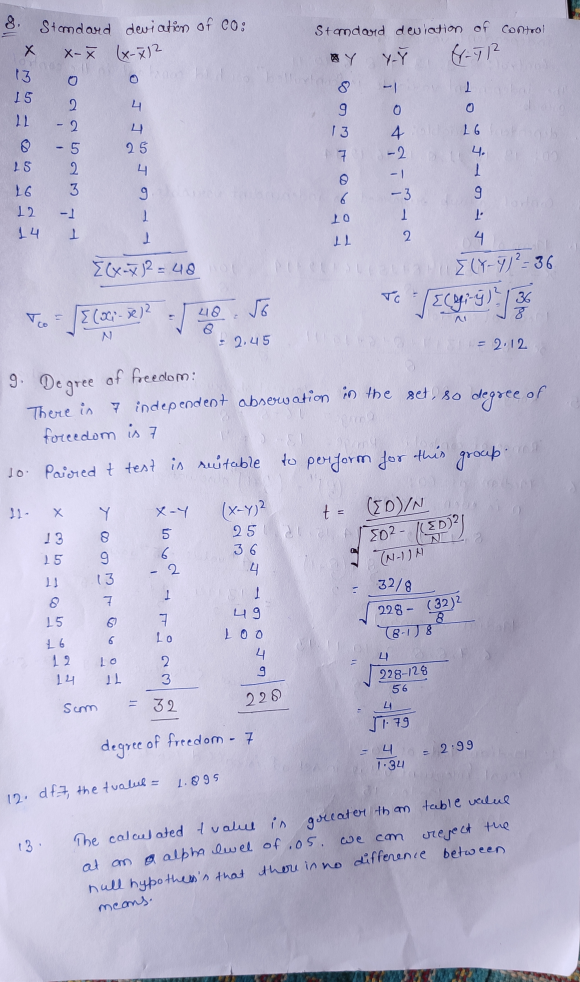 8. Standard deviation of CO:
X X-X̄ (X-X̄)²
13 0 0
15 2 4
11 -2 4
8 -5 25
15 2 4
16 3 9
12 -1 1
14 1 1
Σ(X-X̄)² = 48
σco = √Σ(xi-x̄)²/N = √48/8 = √6
= 2.45
Standard deviation of Control
Y Y-Ȳ (Y-Ȳ)²
8 -1 1
9 0 0
13 4 16
7 -2 4
8 -1 1
6 -3 9
10 1 1
11 2 4
Σ(Y-Ȳ)² = 36
σc = √Σ(yi-ȳ)²/N √36/8
= 2.12
9. Degree of freedom:
There is 7 independent observation in the set, so degree of
freedom is 7
10. Paired t test is suitable to perform for this group.
11. X Y X-Y (X-Y)²
13 8 5 25
15 9 6 36
11 13 -2 4
8 7 1 1
15 8 7 49
16 6 10 100
12 10 2 4
14 11 3 9
Sum = 32 228
degree of freedom - 7
t = (ΣD)/N / √ΣD² - ((ΣD)²/N) / (N-1)N
= 32/8 / √228 - (32)²/8 / (8-1)8
= 4 / √228-128 / 56
= 4 / √1.79
= 4/1.34 = 2.99
12. df7, the t value = 1.895
13. The calculated t value is greater than table value
at an alpha level of .05. we can reject the
null hypothesis that there is no difference between
means.